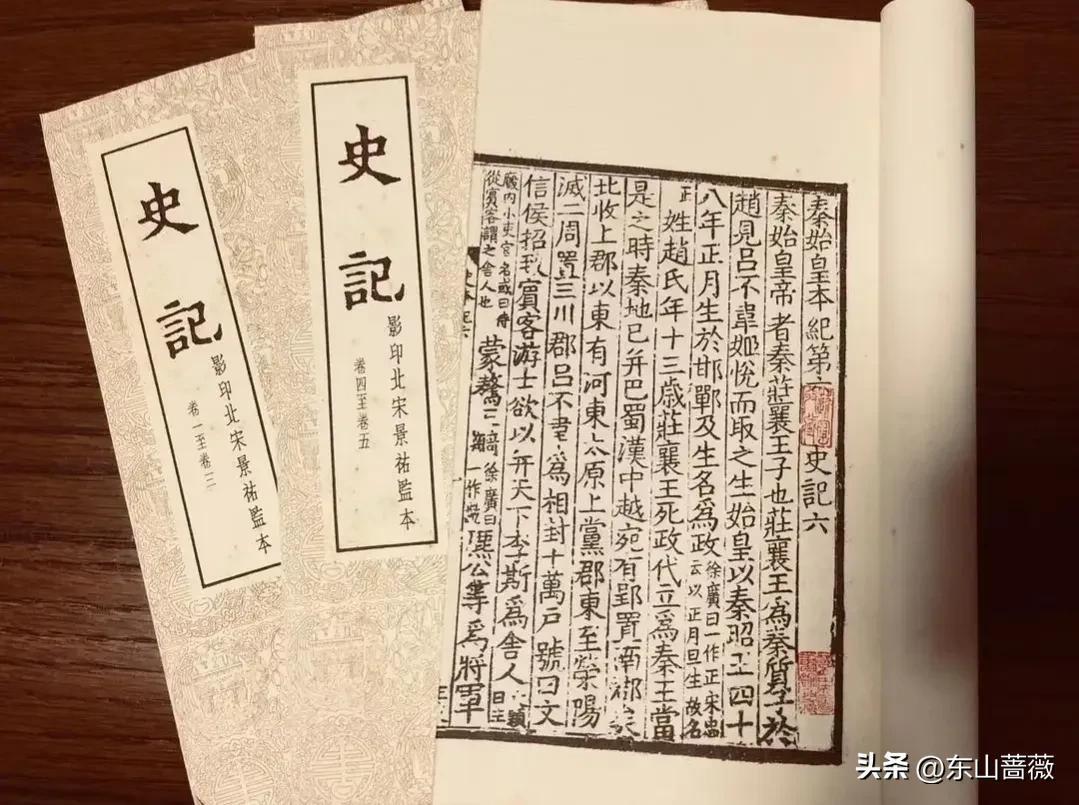 史記
影印北宋景祐監本
卷一至卷三
史記
影印北宋景祐監本
卷四至卷五
秦始皇本紀第 史記六
秦始皇帝者秦莊襄王子也莊襄王爲秦質子於
趙見呂不韋姬悅而取之生始皇以秦昭王四十
八年正月生於邯鄲及生名爲政徐廣曰一作正宋忠云以正月旦生故名
正姓趙氏年十三歳莊襄王死政代立爲秦王當
是之時秦地已并巴蜀漢中越宛有郢置南郡矣
北收上郡以東有河東太原上黨郡東至滎陽
滅二周置三川郡呂不韋爲相封十萬戶號曰文
信侯招致賓客游士欲以并天下李斯爲舍人文穎曰主
廄內小吏官名或曰侍從賓客謂之舍人也蒙驁王齮徐廣曰一作齕麃公等爲將軍
头条 @东山蔷薇